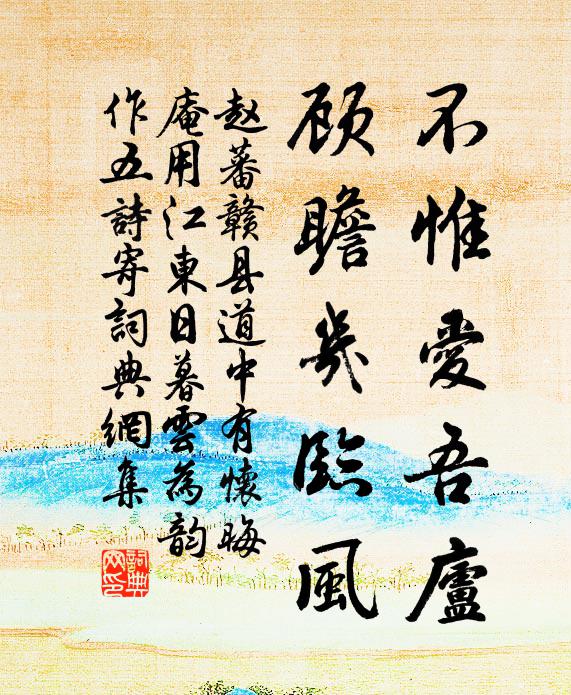 不惟愛吾廬
顾瞻幾臨風
赵蕃贛县道中有懷晦
庵用江東日暮雲為韵
作五詩寄詞典網集
詞典
网印